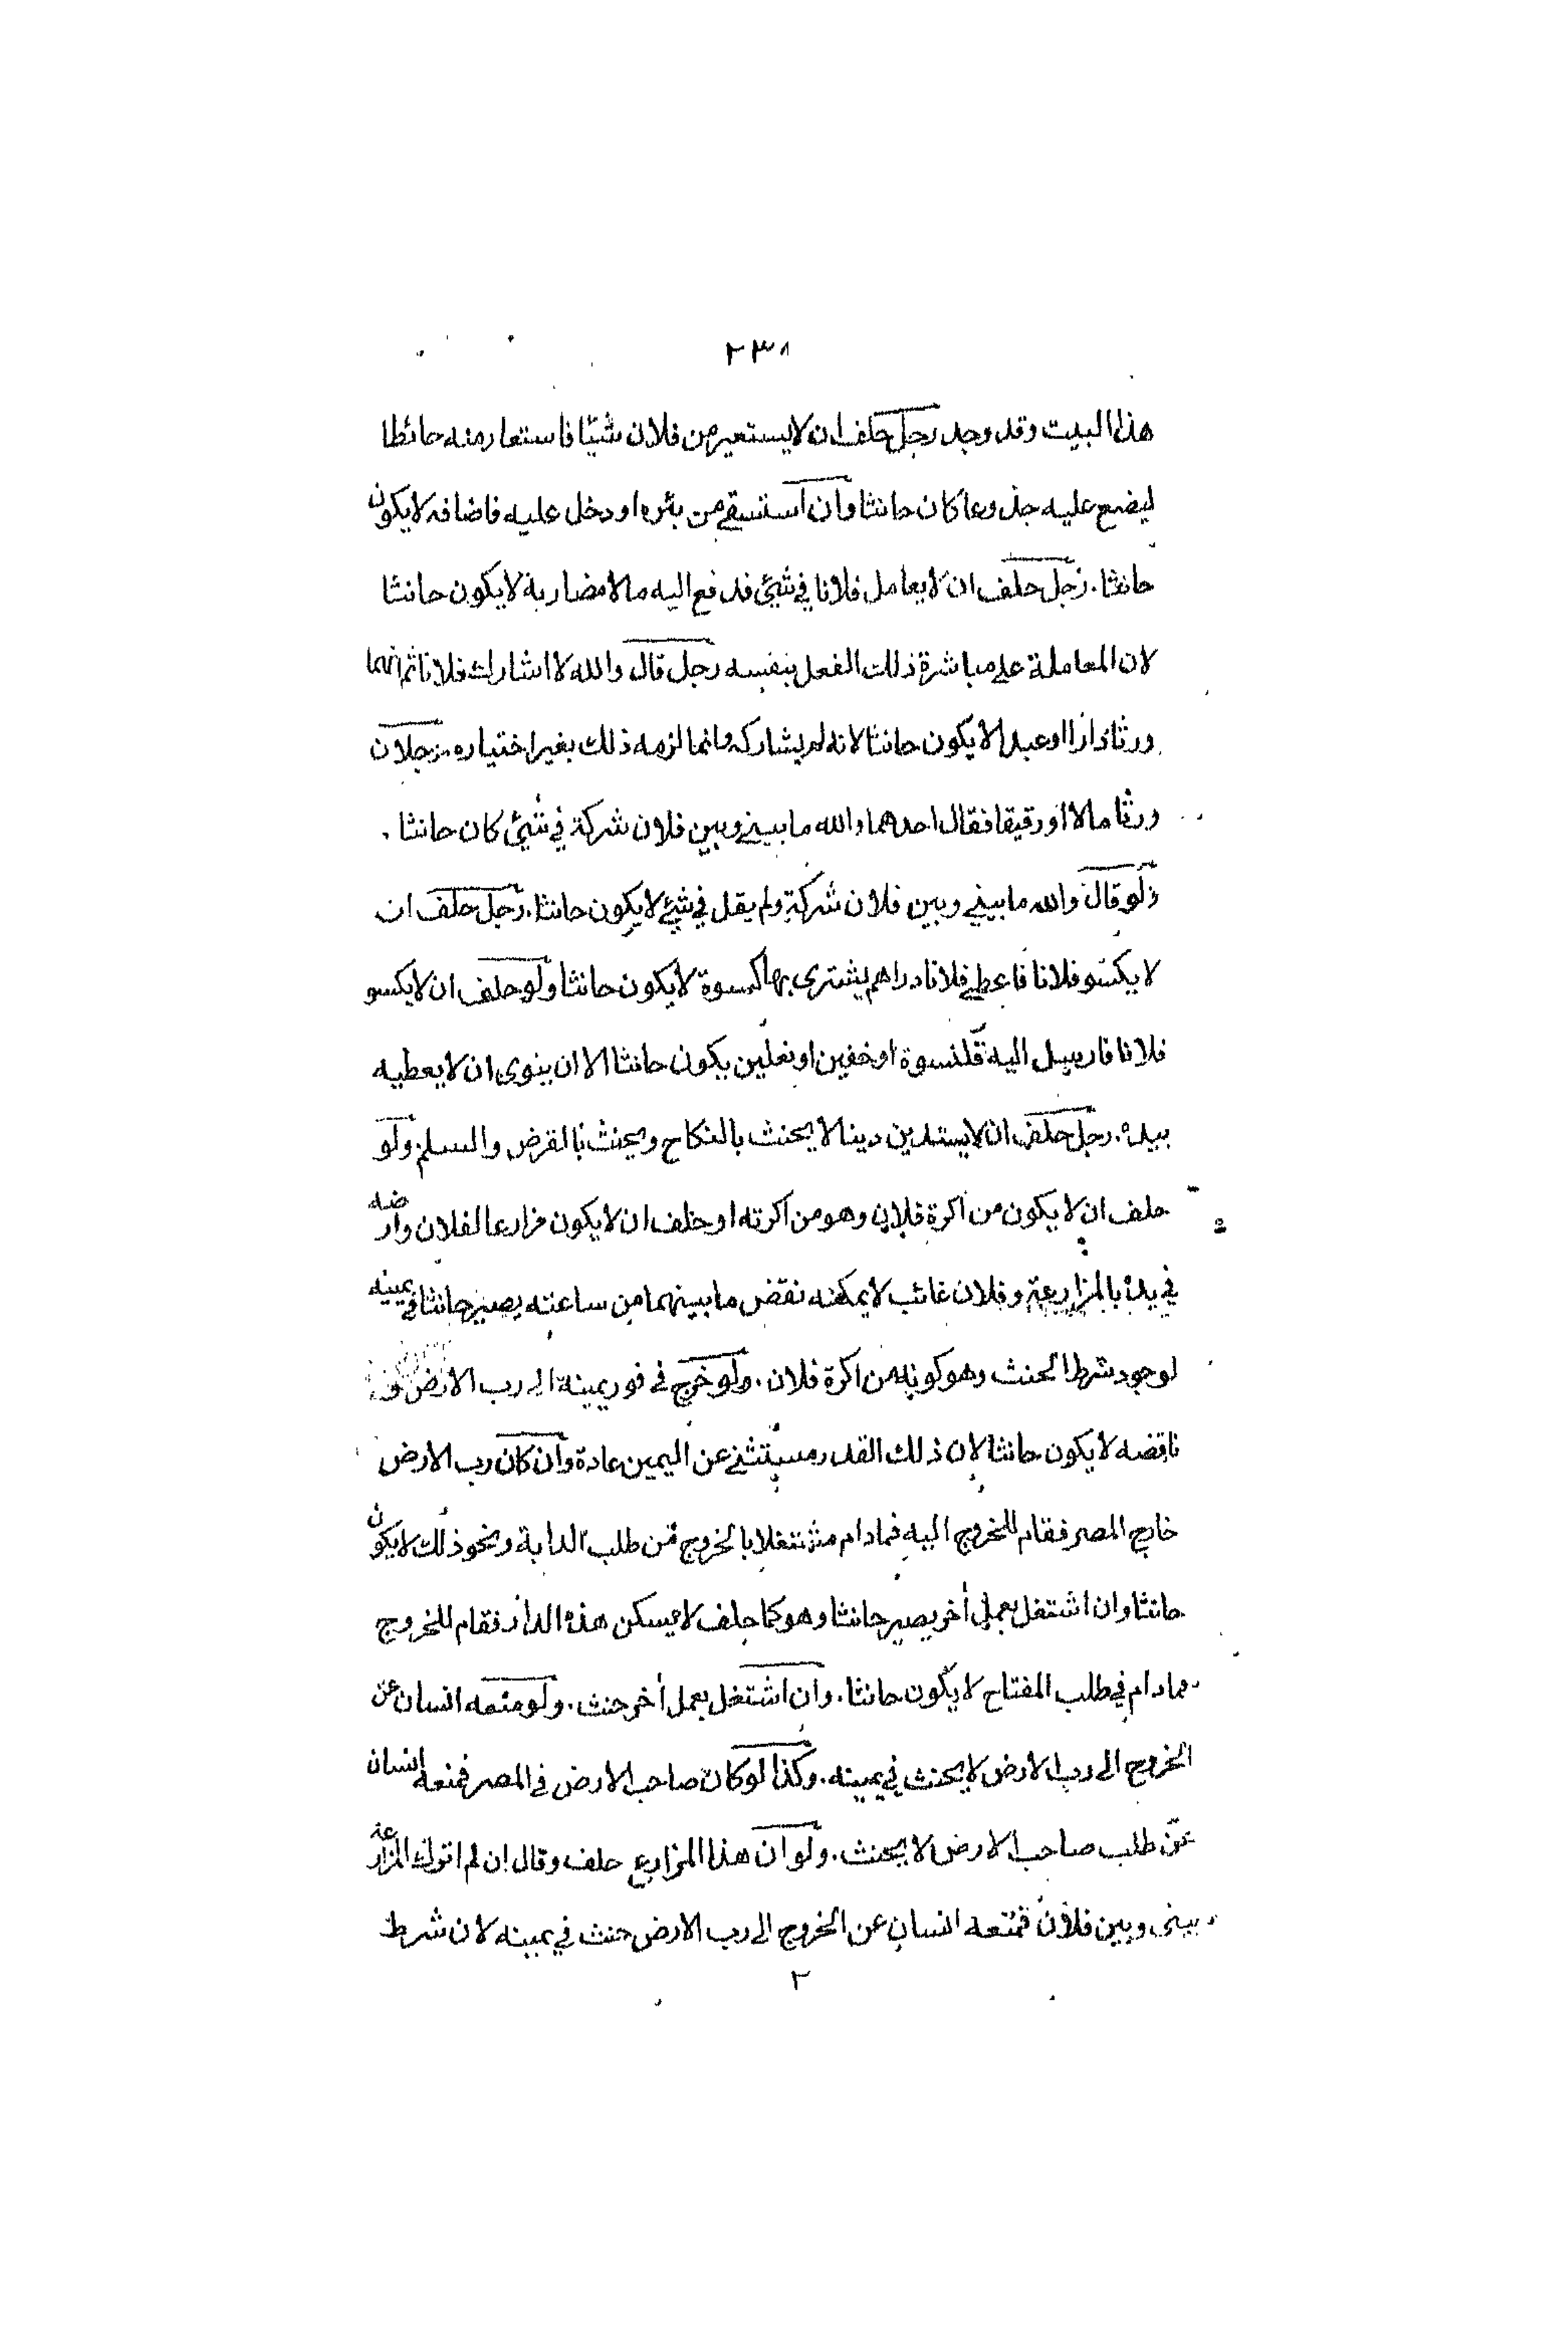 ٢٣٨
هذا البيت وقد وجد رجل حلف ان لا يستعير من فلان شيئا فاستعار منه حائطا
ليضع عليه جذوعا كان حانثا وان استسقى من بئره او دخل عليه فاضافه لا يكون
حانثا. رجل حلف ان لا يعامل فلانا في شيئ فدفع اليه مالا مضاربة لا يكون حانثا
لان المعاملة على مباشرة ذلك الفعل بنفسه رجل قال والله لا اشارك فلانا ثم انهما
ورثا دارا او عبدا لا يكون حانثا لانه لم يشاركه وانما لزمه ذلك بغير اختياره. رجلان
ورثا مالا او رقيقا فقال احدهما والله ما بيني وبين فلان شركة في شيئ كان حانثا.
ولو قال والله ما بيني وبين فلان شركة ولم يقل في شيئ لا يكون حانثا. رجل حلف ان
لا يكسو فلانا فاعطى فلانا دراهم يشترى بها كسوة لا يكون حانثا ولو حلف ان لا يكسو
فلانا فارسل اليه قلنسوة او خفين او نعلين يكون حانثا الا ان ينوى ان لا يعطيه
بيده. رجل حلف ان لا يستدين دينا لا يحنث بالنكاح ويحنث بالقرض والسلم ولو
حلف ان لا يكون من اكرة فلان وهو من اكرته او حلف ان لا يكون مزارعا لفلان وارضه
في يده بالمزارعة وفلان غائب لا يمكنه نقض ما بينهما من ساعته يصير حانثا في يمينه
لوجود شرط الحنث وهو كونه من اكرة فلان. ولو خرج في فور يمينه الى رب الارض و
ناقضه لا يكون حانثا لان ذلك القدر مستثنى عن اليمين عادة وان كان رب الارض
خارج المصر فقام للخروج اليه فمادام مشتغلا بالخروج من طلب الدابة ونحو ذلك لا يكون
حانثا وان اشتغل بعمل أخر يصير حانثا وهو كما حلف لا يسكن هذه الدار فقام للخروج
فمادام في طلب المفتاح لا يكون حانثا. وان اشتغل بعمل أخر حنث. ولو منعه انسان عن
الخروج الى رب الارض لا يحنث في يمينه. وكذا لو كان صاحب الارض في المصر فمنعه انسان
عن طلب صاحب الارض لا يحنث. ولو ان هذا المزارع حلف وقال ان لم اترك المزارعة
بينى وبين فلان فمنعه انسان عن الخروج الى رب الارض حنث في يمينه لان شرط
٢